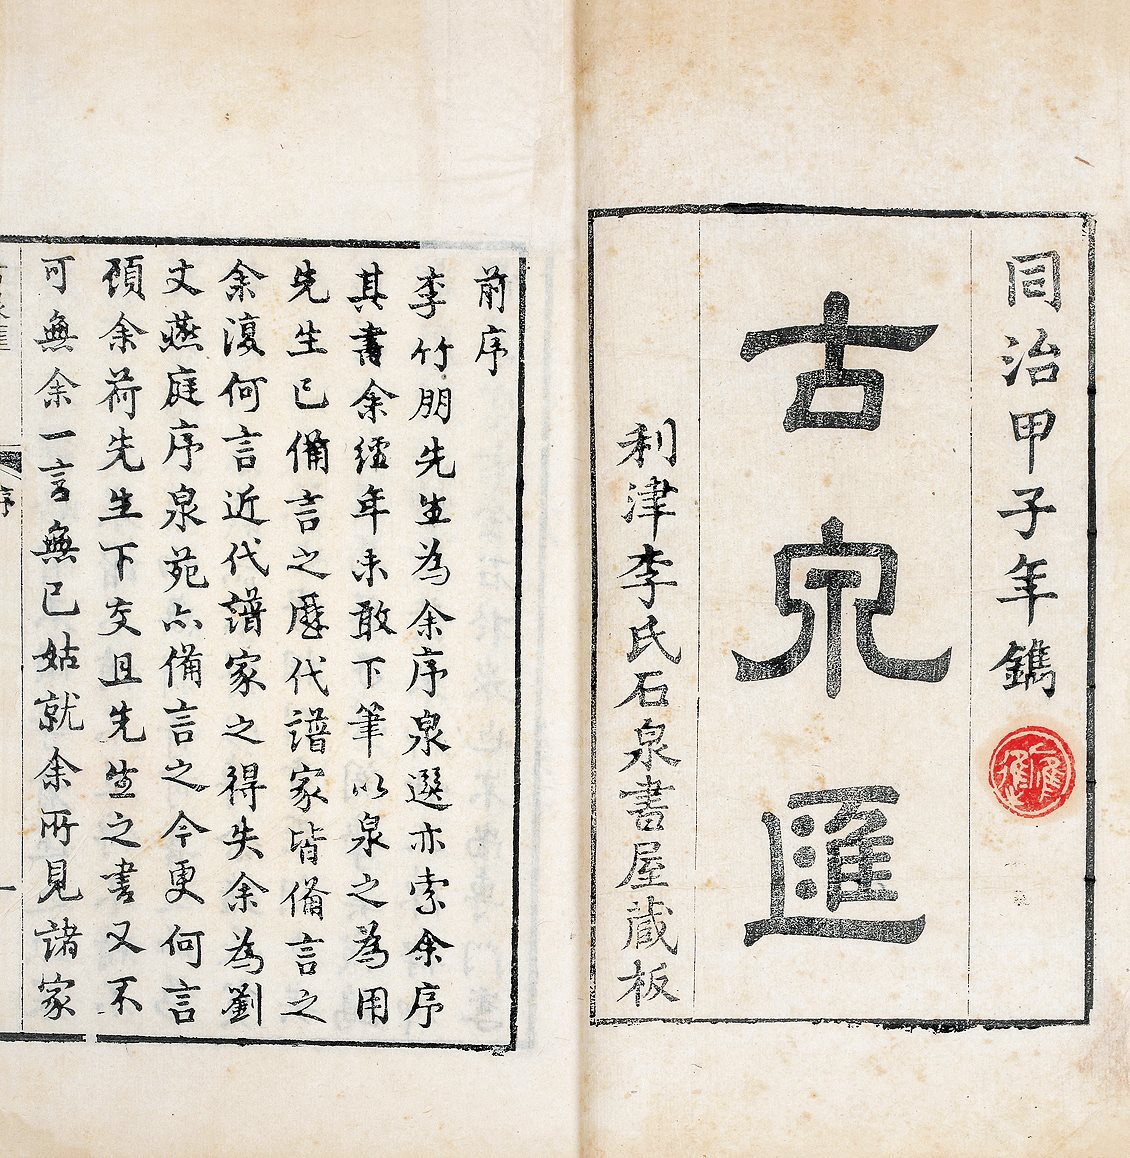 同治甲子年鐫
古泉匯
利津李氏石泉書屋藏板
前序
李竹朋先生為余序泉選亦索余序
其書余經年未敢下筆以泉之為用
先生已備言之歷代譜家皆備言之
余復何言近代譜家之得失余為劉
丈燕庭序泉苑亦備言之今更何言
頎余荷先生下交且先生之書又不
可無余一言無已姑就余所見諸家
序
一